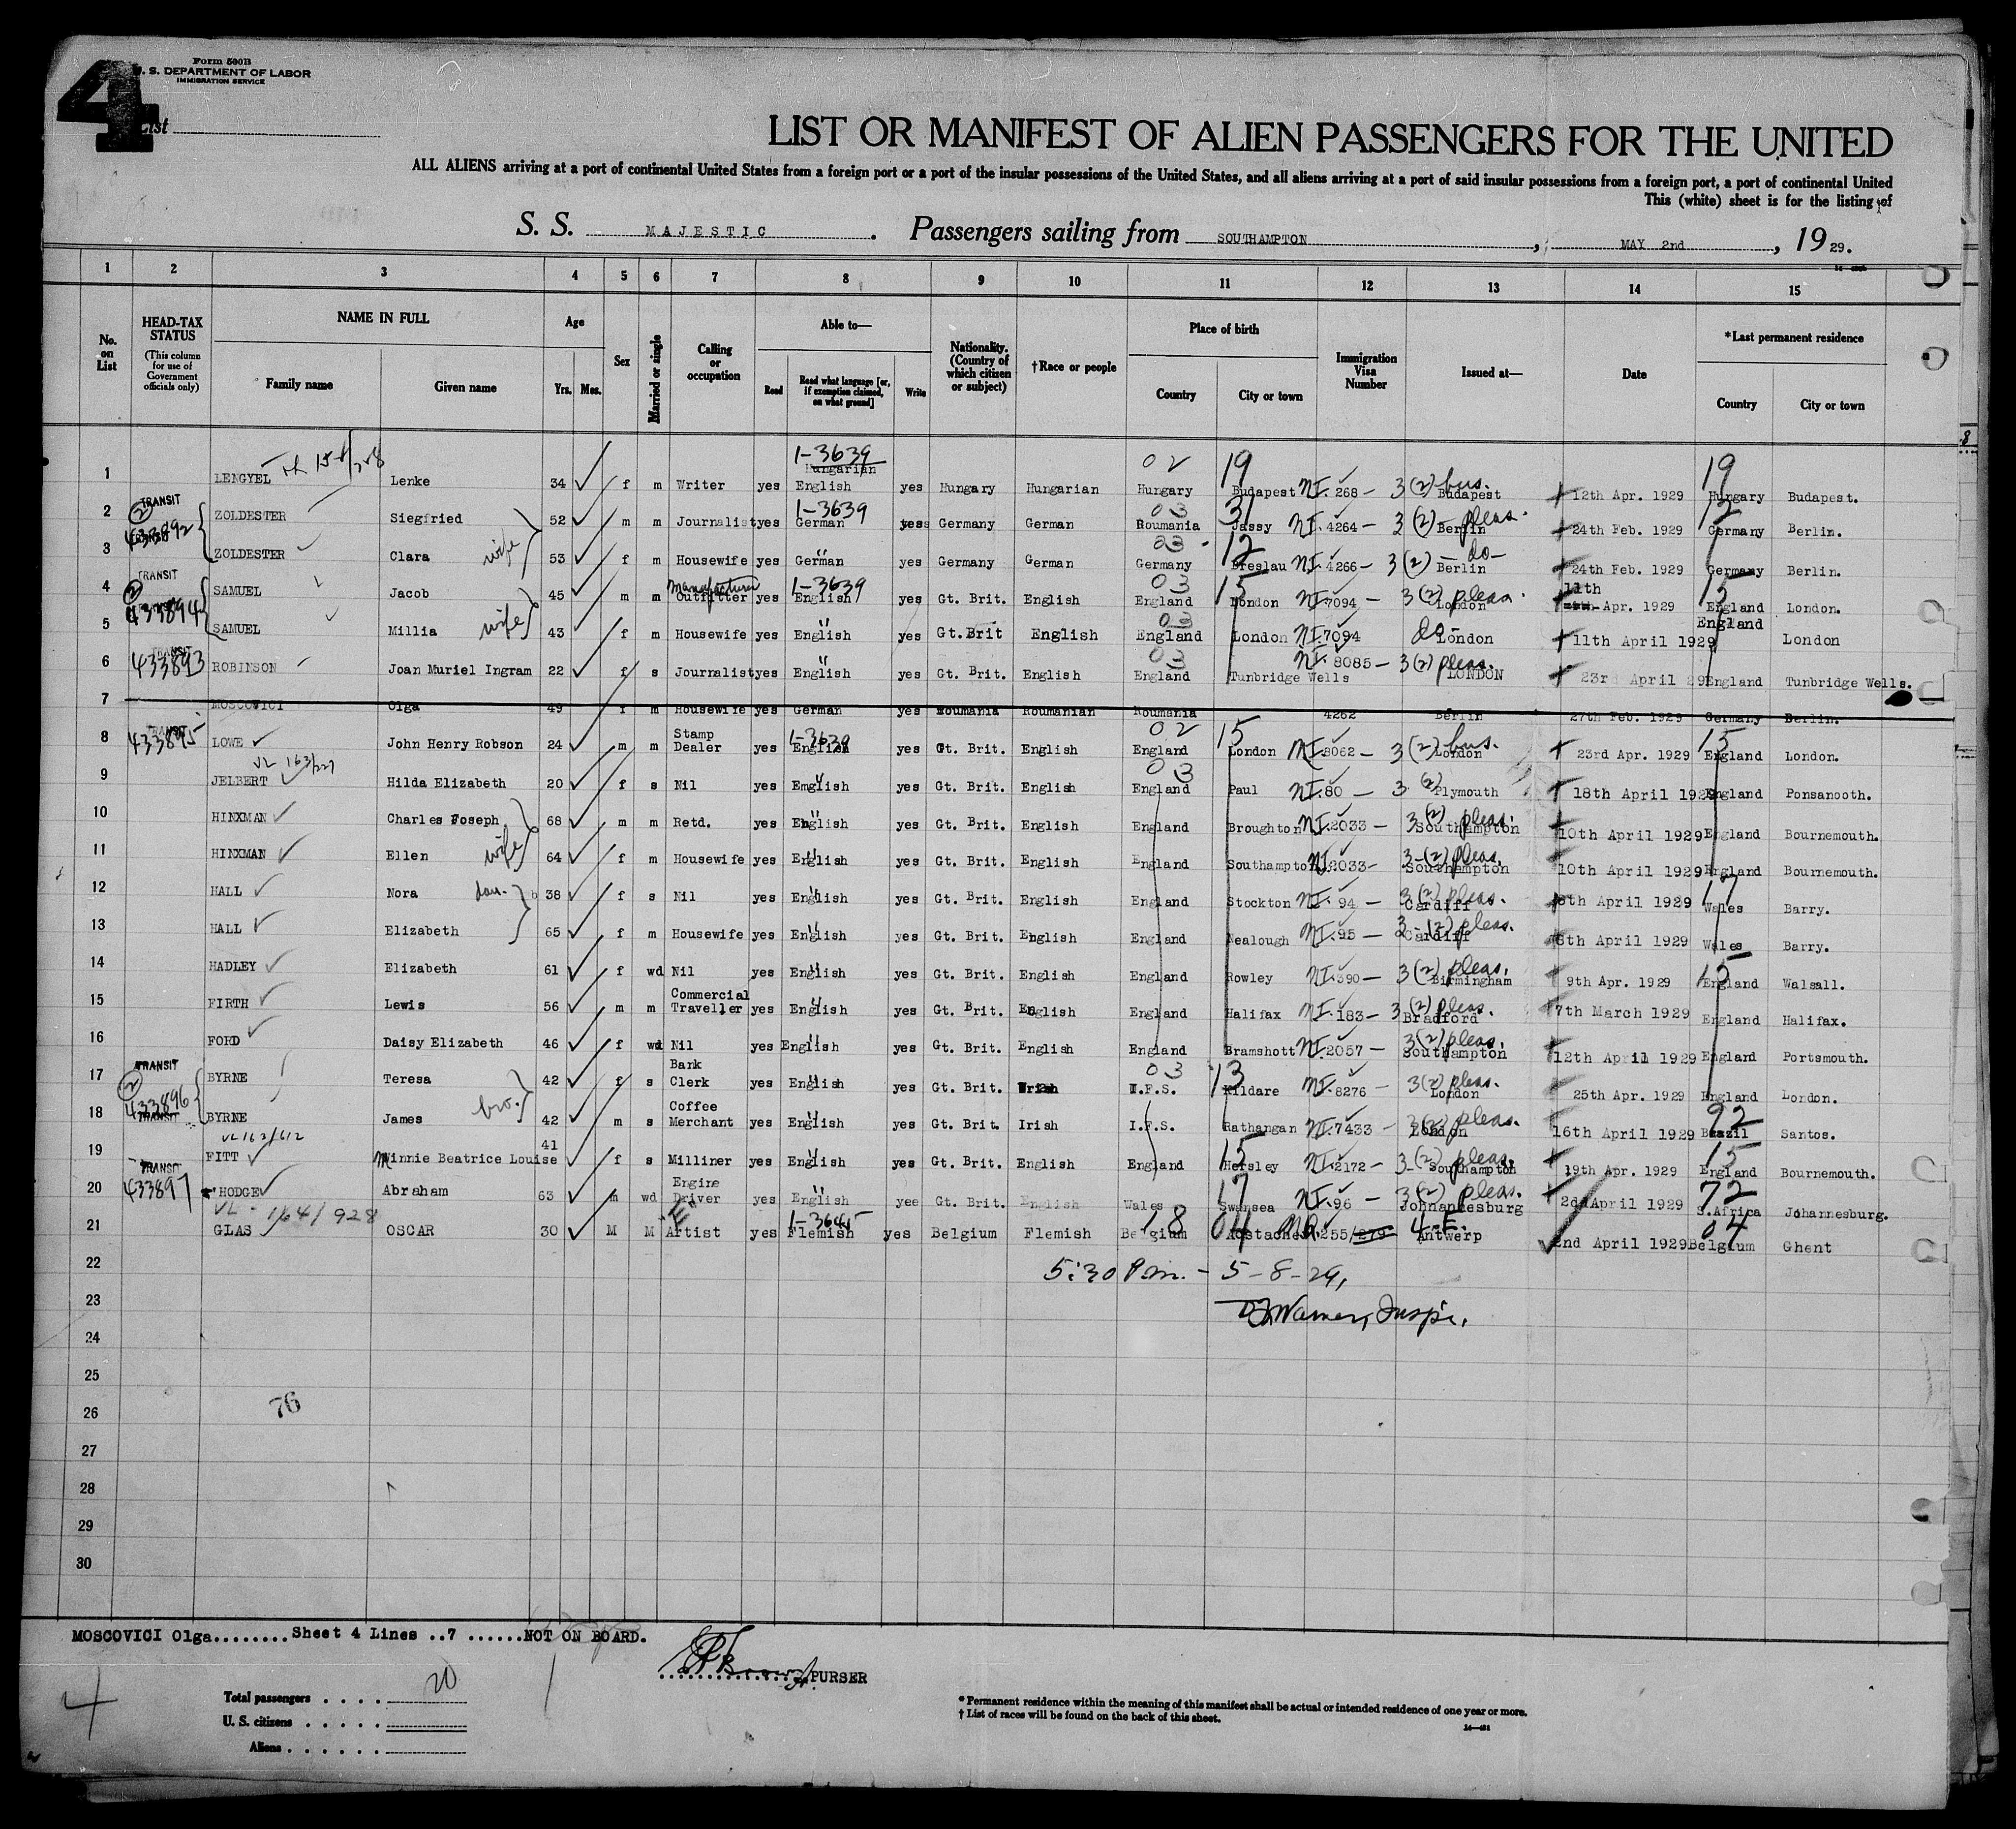 4
Form 500B
U. S. DEPARTMENT OF LABOR
IMMIGRATION SERVICE
List
LIST OR MANIFEST OF ALIEN PASSENGERS FOR THE UNITED
ALL ALIENS arriving at a port of continental United States from a foreign port or a port of the insular possessions of the United States, and all aliens arriving at a port of said insular possessions from a foreign port, a port of continental United
This (white) sheet is for the listing of
S. S. MAJESTIC . Passengers sailing from SOUTHAMPTON , MAY 2nd , 19 29.
1 2 3 4 5 6 7 8 9 10 11 12 13 14 15
No. on List
HEAD-TAX STATUS (This column for use of Government officials only)
NAME IN FULL Family name Given name
Age Yrs. Mos.
Sex
Married or single
Calling or occupation
Able to— Read Read what language [or, if exemption claimed, on what ground] Write
Nationality. (Country of which citizen or subject)
†Race or people
Place of birth Country City or town
Immigration Visa Number
Issued at—
Date
*Last permanent residence Country City or town
1-3639 02 19 19
1 LENGYEL Lenke 34 f m Writer yes Hungarian English yes Hungary Hungarian Hungary Budapest NI. 268 — 3 (2) bus. Budapest 12th Apr. 1929 Hungary Budapest.
TRANSIT 1-3639 03 31
2 ZOLDESTER Siegfried 52 m m Journalist yes German yes Germany German Roumania Jassy NI. 4264 — 3 (2) pleas. Berlin 24th Feb. 1929 Germany Berlin.
433892 03 12
3 ZOLDESTER Clara wife 53 f m Housewife yes German yes Germany German Germany Breslau NI. 4266 — 3 (2) — do — Berlin 24th Feb. 1929 Germany Berlin.
TRANSIT Manufacturer 1-3639 03 15 11th 15
4 SAMUEL Jacob 45 m m Outfitter yes English yes Gt. Brit. English England London NI. 7094 — 3 (2) pleas. London Apr. 1929 England London.
433894 03
5 SAMUEL Millia wife 43 f m Housewife yes English yes Gt.Brit English England London NI. 7094 do — London 11th April 1929 England London
TRANSIT 433893 03
6 ROBINSON Joan Muriel Ingram 22 f s Journalist yes English yes Gt. Brit. English England Tunbridge Wells NI. 8085 — 3 (2) pleas. LONDON 23rd April 29 England Tunbridge Wells.
7 MOSCOVICI Olga 49 f m Housewife yes German yes Roumania Roumanian Roumania 4262 Berlin 27th Feb. 1929 Germany Berlin.
433895 1-3639 02 15 15
8 LOWE John Henry Robson 24 m m Stamp Dealer yes English yes Gt. Brit. English England London NI. 8062 — 3 (2) bus. London 23rd Apr. 1929 England London.
VL 163/227 03
9 JELBERT Hilda Elizabeth 20 f s Nil yes Emglish yes Gt. Brit. English England Paul NI. 80 — 3 (2) Plymouth 18th April 1929 England Ponsanooth.
10 HINXMAN Charles Joseph 68 m m Retd. yes English yes Gt. Brit. English England Broughton NI. 2033 — 3 (2) pleas. Southampton 10th April 1929 England Bournemouth.
11 HINXMAN Ellen wife 64 f m Housewife yes English yes Gt. Brit. English England Southampton NI. 2033 — 3 (2) pleas. Southampton 10th April 1929 England Bournemouth.
12 HALL Nora dau. 38 f s Nil yes English yes Gt. Brit. English England Stockton NI. 94 — 3 (2) pleas. Cardiff 8th April 1929 17 Wales Barry.
13 HALL Elizabeth 65 f m Housewife yes English yes Gt. Brit. English England Nealough NI. 95 — 3 (2) pleas. Cardiff 8th April 1929 Wales Barry.
14 HADLEY Elizabeth 61 f wd Nil yes English yes Gt. Brit. English England Rowley NI. 390 — 3 (2) pleas. Birmingham 9th Apr. 1929 15 England Walsall.
15 FIRTH Lewis 56 m m Commercial Traveller yes English yes Gt. Brit. English England Halifax NI. 183 — 3 (2) pleas. Bradford 7th March 1929 England Halifax.
16 FORD Daisy Elizabeth 46 f wd Nil yes English yes Gt. Brit. English England Bramshott NI. 2057 — 3 (2) pleas. Southampton 12th April 1929 England Portsmouth.
TRANSIT 03 13
17 BYRNE Teresa 42 f s Bank Clerk yes English yes Gt. Brit. Irish I.F.S. Kildare NI. 8276 — 3 (2) pleas. London 25th Apr. 1929 England London.
433896 TRANSIT
18 BYRNE James bro. 42 m s Coffee Merchant yes English yes Gt. Brit. Irish I.F.S. Rathangan NI. 7433 — 3 (2) pleas. London 16th April 1929 92 Brazil Santos.
VL 162/612
19 FITT Minnie Beatrice Louise 41 f s Milliner yes English yes Gt. Brit. English England 15 Hersley NI. 2172 — 3 (2) pleas. Southampton 19th Apr. 1929 15 England Bournemouth.
TRANSIT 433897
20 HODGE Abraham 63 m wd Engine Driver yes English yee Gt. Brit. English Wales 17 Swansea NI. 96 — 3 (2) pleas. Johnannesburg 2d April 1929 72 S.Africa Johannesburg.
VL - 164/928 "E" 1-3645
21 GLAS OSCAR 30 M M Artist yes Flemish yes Belgium Flemish Belgium 04 255/279 4-E. Antwerp 2nd April 1929 04 Belgium Ghent
22 5:30 P.m. — 5-8-29,
23 Warner, Inspr.
24
25
26 76
27
28
29
30
MOSCOVICI Olga........Sheet 4 Lines ..7 ......NOT ON BOARD.
PURSER
4
Total passengers . . . . 20
U. S. citizens . . . . .
Aliens . . . . . .
* Permanent residence within the meaning of this manifest shall be actual or intended residence of one year or more.
† List of races will be found on the back of this sheet.
14—491